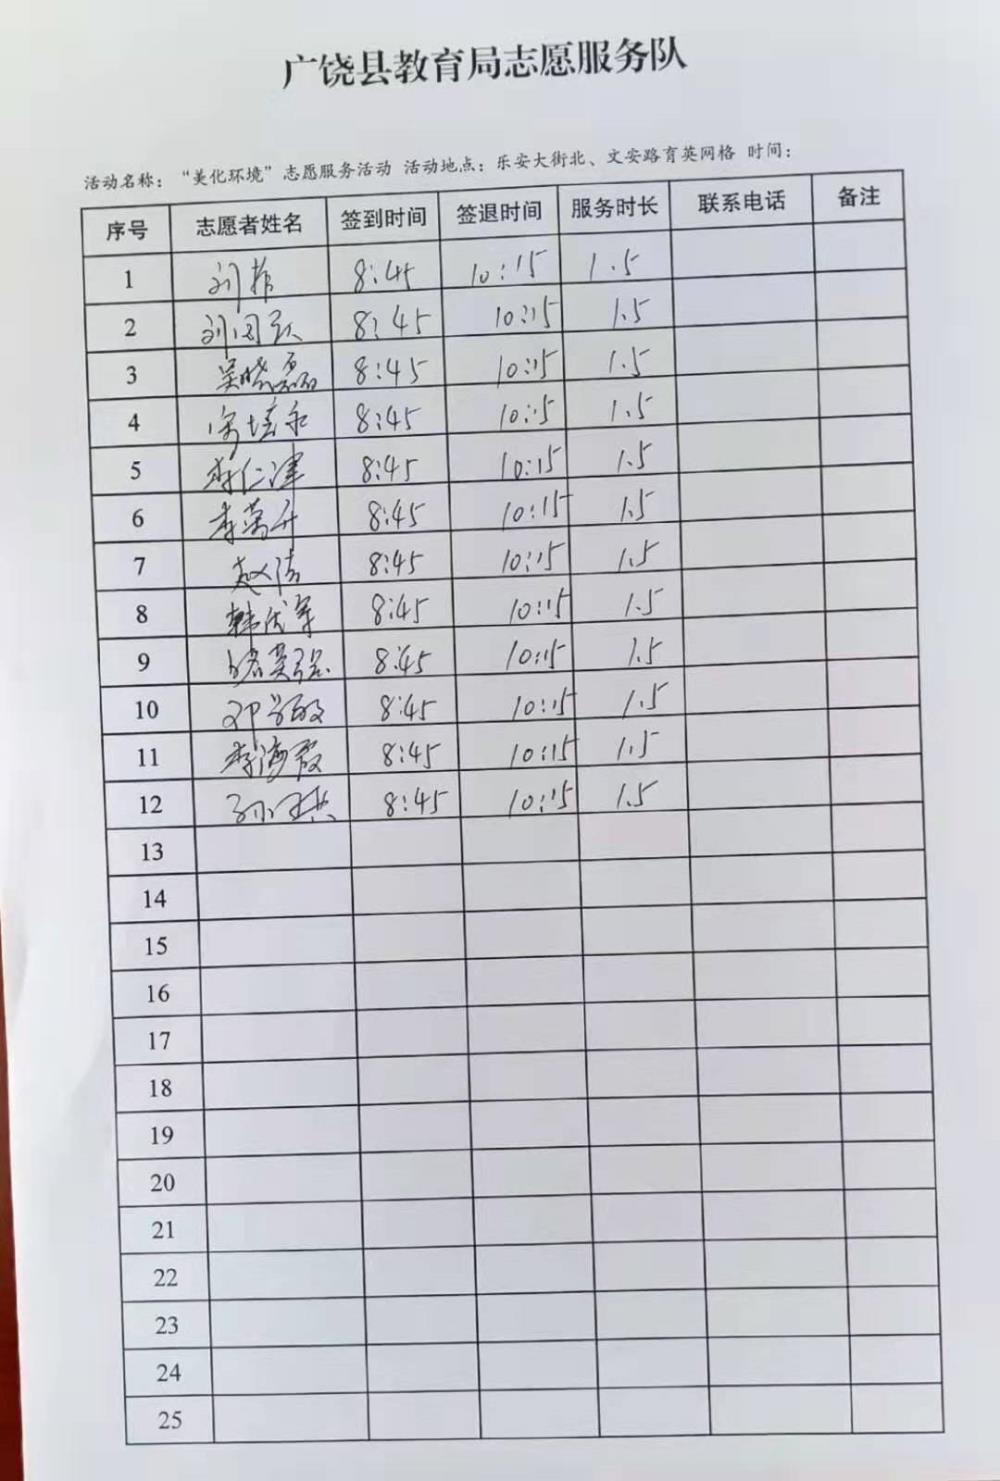 广饶县教育局志愿服务队
活动名称：“美化环境”志愿服务活动 活动地点：乐安大街北、文安路育英网格 时间：
序号 志愿者姓名 签到时间 签退时间 服务时长 联系电话 备注
1 8:45 10:15 1.5
2 8:45 10:15 1.5
3 吴晓磊 8:45 10:15 1.5
4 8:45 10:15 1.5
5 李仁津 8:45 10:15 1.5
6 李万升 8:45 10:15 1.5
7 赵洁 8:45 10:15 1.5
8 8:45 10:15 1.5
9 8:45 10:15 1.5
10 邓学敏 8:45 10:15 1.5
11 李海霞 8:45 10:15 1.5
12 8:45 10:15 1.5
13
14
15
16
17
18
19
20
21
22
23
24
25